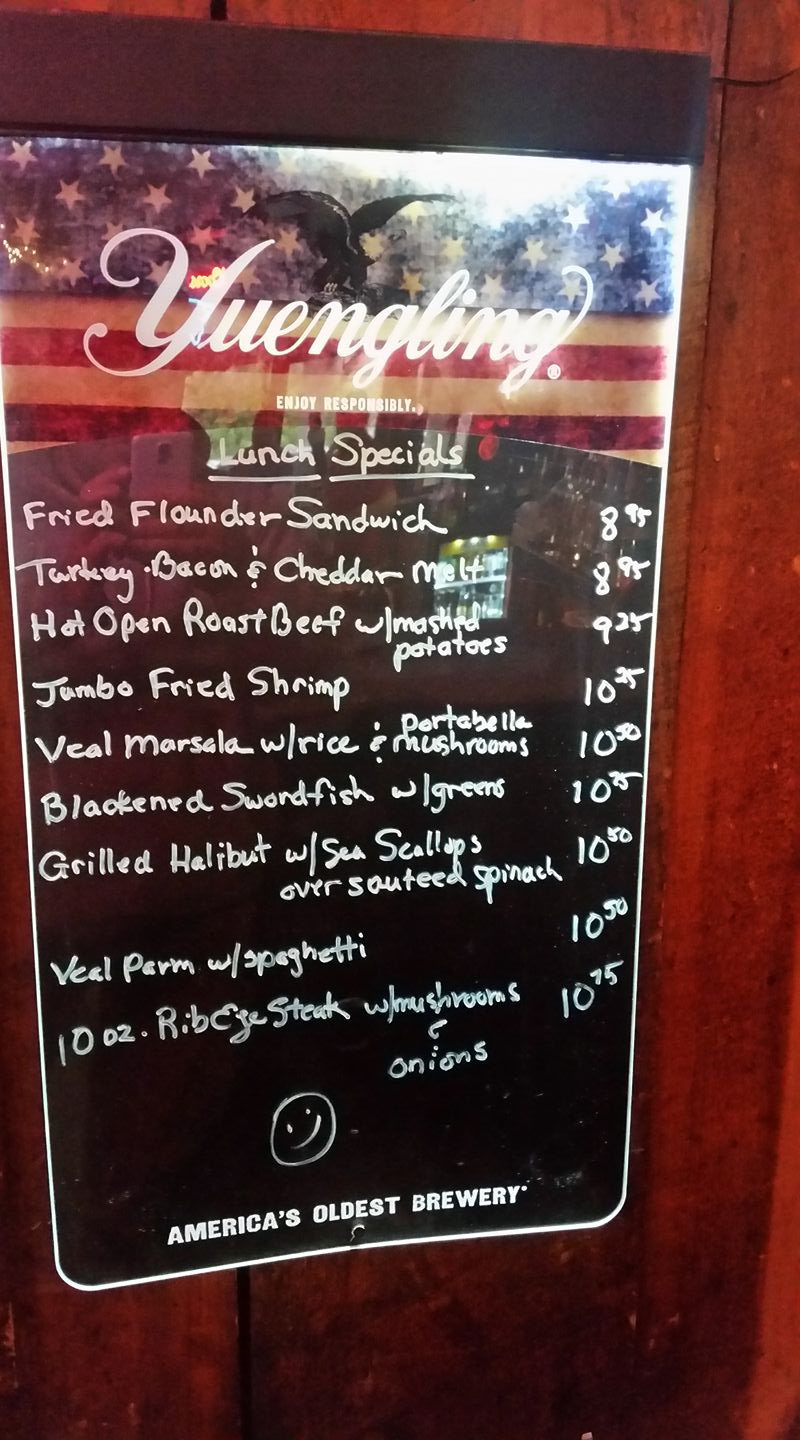 Yuengling®
ENJOY RESPONSIBLY.
Lunch Specials
Fried Flounder Sandwich 8 95
Turkey Bacon & Cheddar Melt 8 95
Hot Open Roast Beef w/mashed potatoes 9 25
Jumbo Fried Shrimp 10 25
Veal Marsala w/rice & portabella mushrooms 10 50
Blackened Swordfish w/greens 10 25
Grilled Halibut w/Sea Scallops 10 50
over sauteed spinach
Veal Parm w/spaghetti 10 50
10 oz. RibEye Steak w/mushrooms 10 75
&
onions
AMERICA'S OLDEST BREWERY